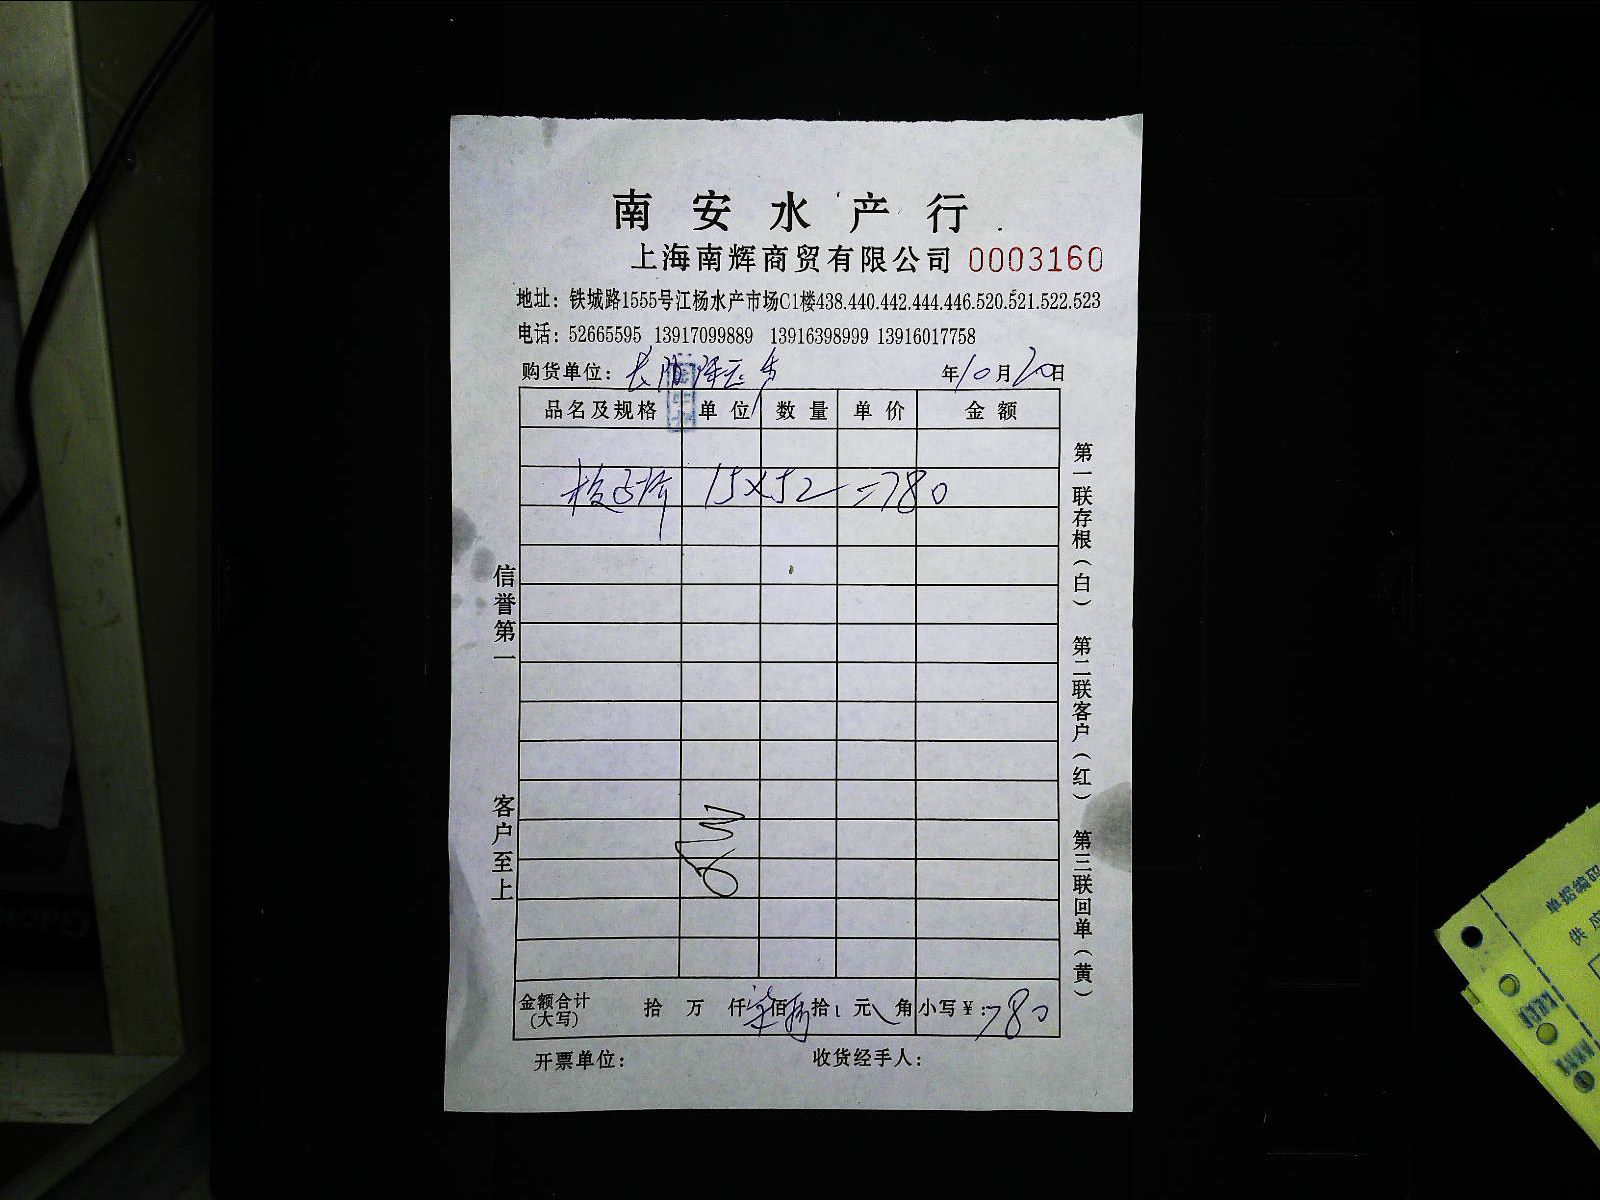 南安水产行
上海南辉商贸有限公司 0003160
地址：铁城路1555号江杨水产市场C1楼438.440.442.444.446.520.521.522.523
电话：52665595 13917099889 13916398999 13916017758
购货单位： 年10月20日
品名及规格 单位 数量 单价 金额
15×52=780
信誉第一
客户至上
第一联存根（白） 第二联客户（红） 第三联回单（黄）
金额合计（大写） 拾 万 仟 柒佰 捌拾 元 角 小写￥：780
开票单位： 收货经手人：
单据编码
供应